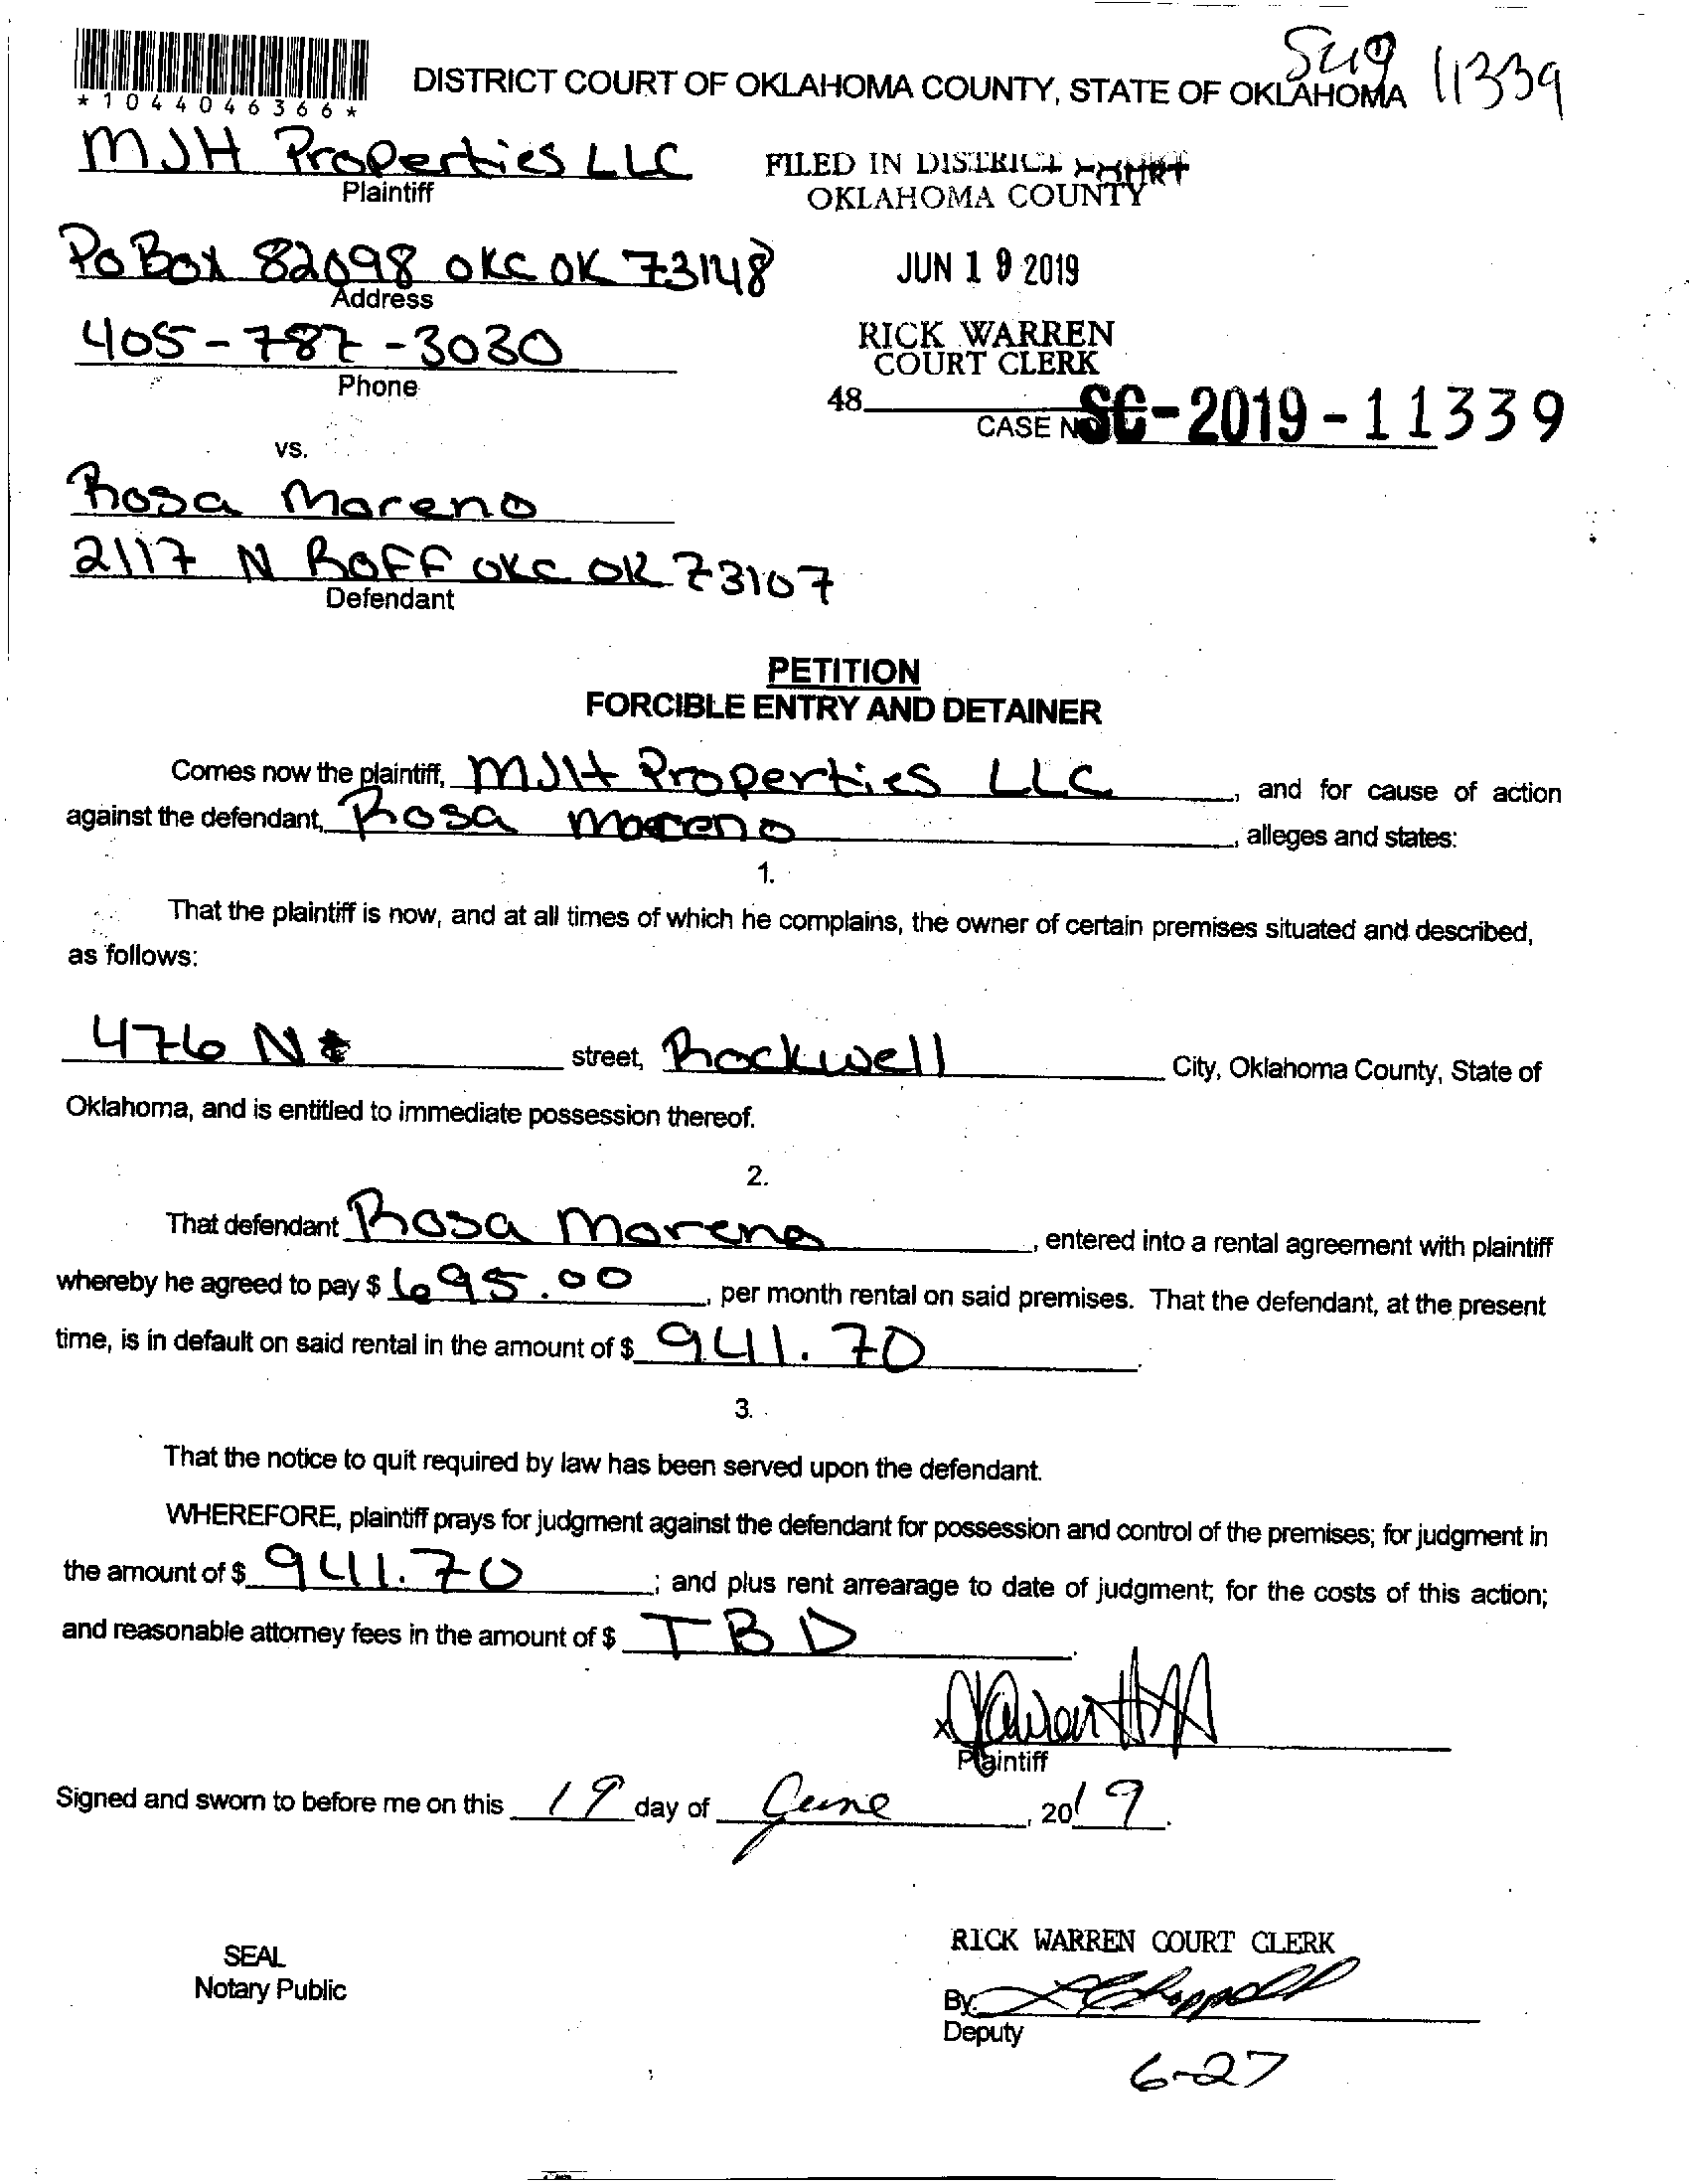 *1044046366*
DISTRICT COURT OF OKLAHOMA COUNTY, STATE OF OKLAHOMA
11339
MJH Properties LLC
Plaintiff
FILED IN DISTRICT COURT
OKLAHOMA COUNTY
PO Box 82098 OKC OK 73148
Address
JUN 19 2019
405-787-3030
Phone
RICK WARREN
COURT CLERK
48
CASE NO SC-2019-11339
vs.
Rosa Moreno
2117 N Roff OKC OK 73107
Defendant
PETITION
FORCIBLE ENTRY AND DETAINER
Comes now the plaintiff, MJH Properties LLC, and for cause of action
against the defendant, Rosa Moreno, alleges and states:
1.
That the plaintiff is now, and at all times of which he complains, the owner of certain premises situated and described,
as follows:
476 N street, Rockwell City, Oklahoma County, State of
Oklahoma, and is entitled to immediate possession thereof.
2.
That defendant Rosa Moreno, entered into a rental agreement with plaintiff
whereby he agreed to pay $ 695.00, per month rental on said premises. That the defendant, at the present
time, is in default on said rental in the amount of $ 941.70.
3.
That the notice to quit required by law has been served upon the defendant.
WHEREFORE, plaintiff prays for judgment against the defendant for possession and control of the premises; for judgment in
the amount of $ 941.70; and plus rent arrearage to date of judgment; for the costs of this action;
and reasonable attorney fees in the amount of $ TBD.
x
Plaintiff
Signed and sworn to before me on this 19 day of June, 2019.
SEAL
Notary Public
RICK WARREN COURT CLERK
By:
Deputy
6-27